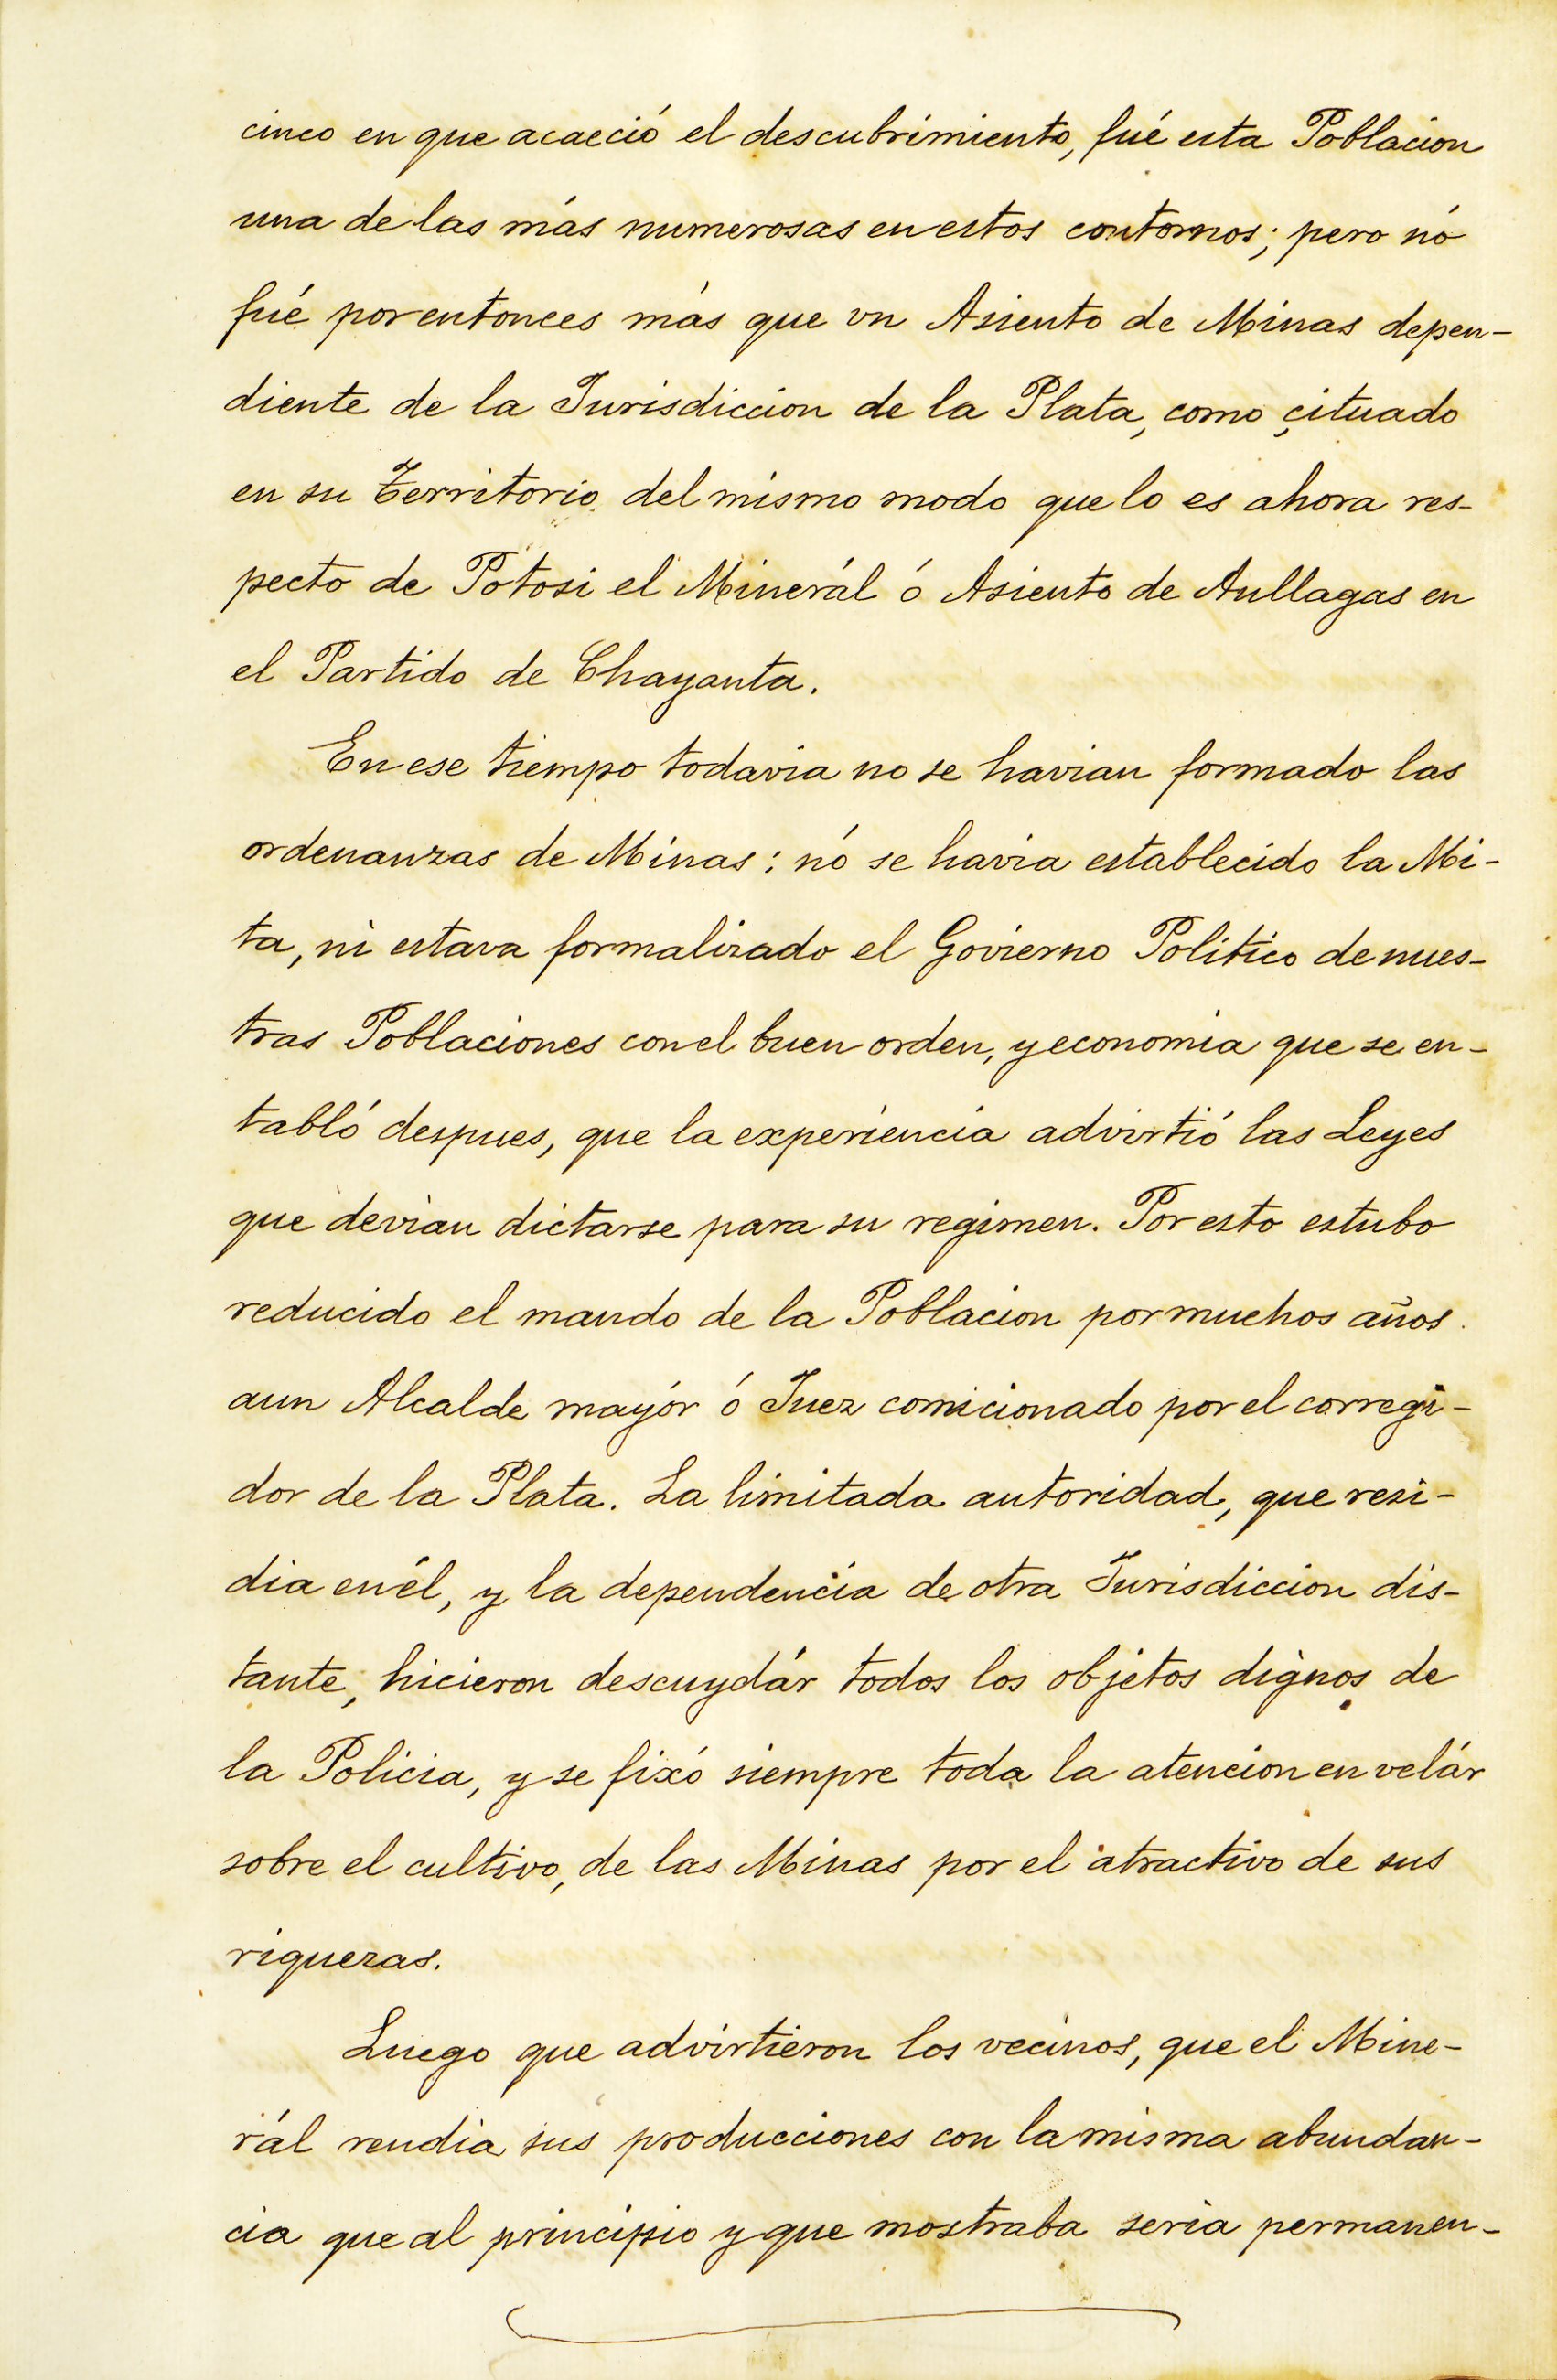 cinco en que acaeció el descubrimiento, fué esta Poblacion
una de las más numerosas en estos contornos; pero nó
fué por entonces más que vn Asiento de Minas depen-
diente de la Jurisdiccion de la Plata, como çituado
en su Territorio del mismo modo que lo es ahora res-
pecto de Potosi el Minerál ó Asiento de Aullagas en
el Partido de Chayanta.
En ese tiempo todavia no se havian formado las
ordenanzas de Minas: nó se havia establecido la Mi-
ta, ni estava formalizado el Govierno Politico de nues-
tras Poblaciones con el buen orden, y economia que se en-
tabló despues, que la experiencia advirtió las Leyes
que devian dictarse para su regimen. Por esto estubo
reducido el mando de la Poblacion por muchos años.
aun Alcalde mayór ó Juez comicionado por el corregi-
dor de la Plata. La limitada autoridad, que resi-
dia en él, y la dependencia de otra Jurisdiccion dis-
tante, hicieron descuydár todos los objetos dignos de
la Policia, y se fixó siempre toda la atencion en velár
sobre el cultivo, de las Minas por el atractivo de sus
riquezas.
Luego que advirtieron los vecinos, que el Mine-
rál rendia sus producciones con la misma abundan-
cia que al principio y que mostraba seria permanen-